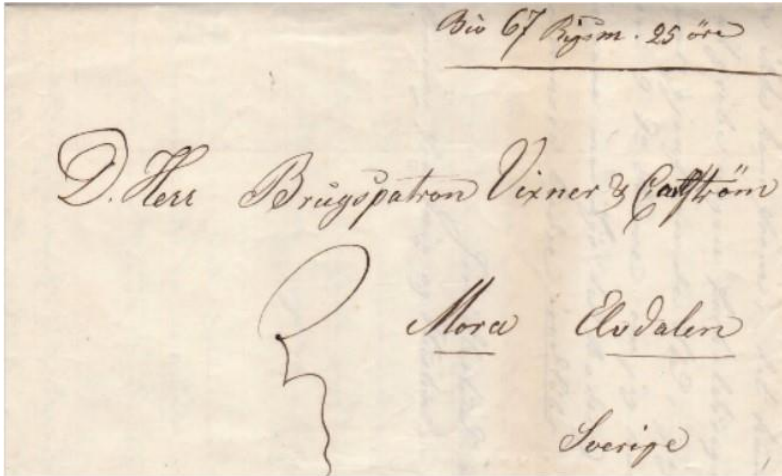 Bio 67 Rigsm. 25 öre
D. Herr Brugspatron Vixner & Carlström
Mora Elvdalen
Sverige